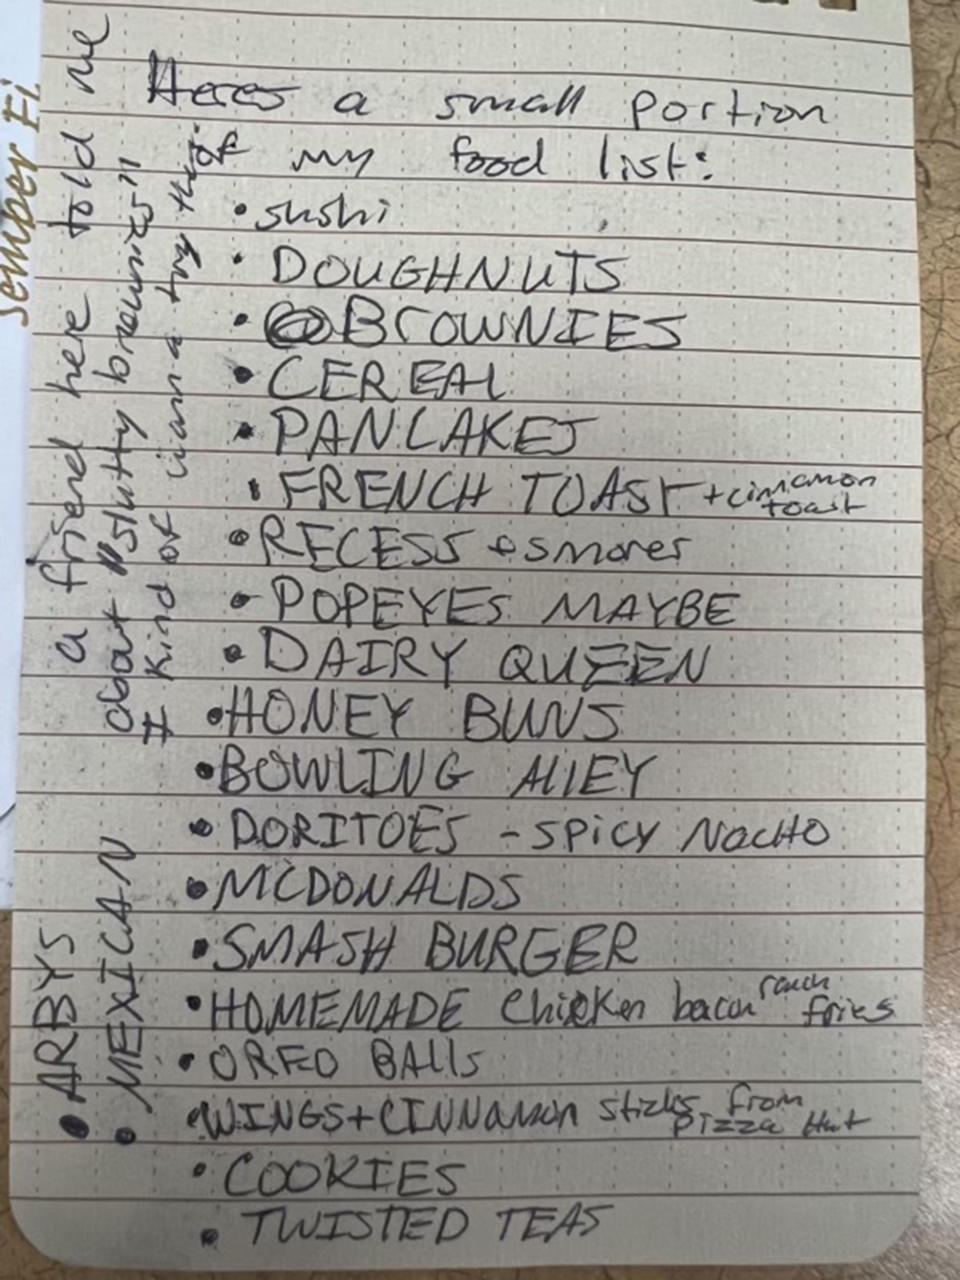 Heres a small portion
of my food list:
• sushi
• DOUGHNUTS
• BROWNIES
• CEREAL
• PANCAKES
• FRENCH TOAST + cinnamon toast
• RECESS + smores
• POPEYES MAYBE
• DAIRY QUEEN
• HONEY BUNS
• BOWLING AllEY
• DORITOES - SPICY NACHO
• MCDONALDS
• SMASH BURGER
• HOMEMADE Chicken bacon ranch fries
• OREO BAlls
• WINGS + CINNAmon sticks from pizza Hut
• COOKIES
• TWISTED TEAS
• ARBYS
• MEXICAN
a friend here told me
about "slutty brownies"
I kind of wanna try this.
Semper Fi